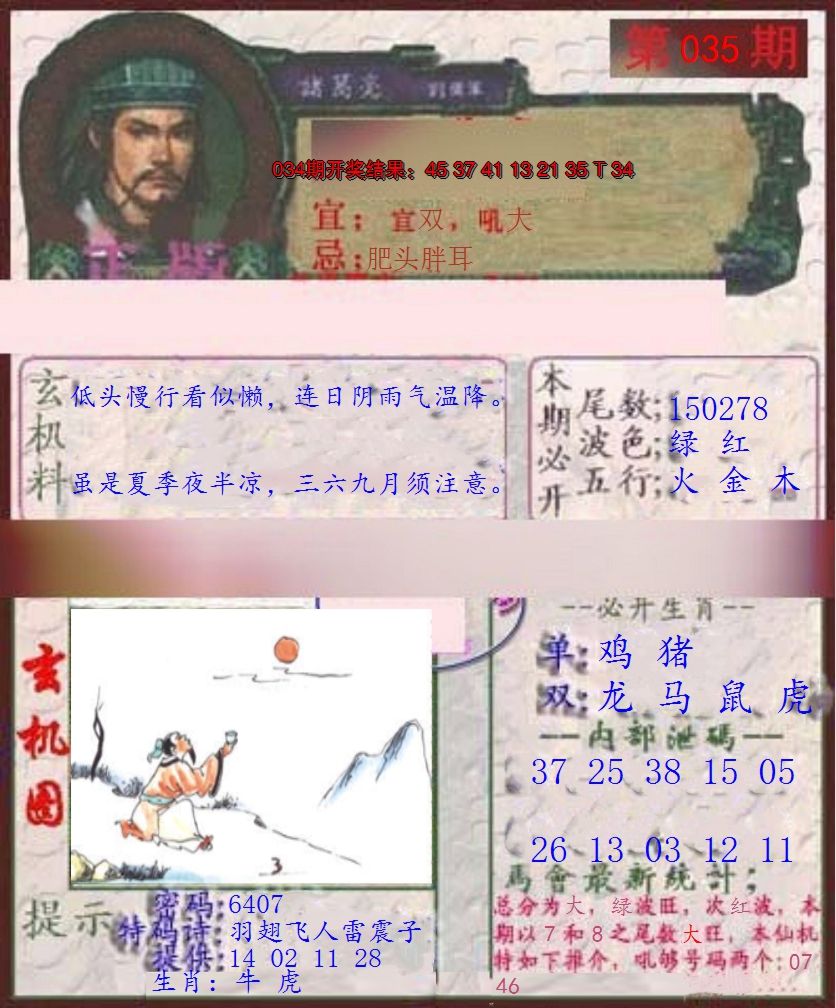 第 035 期
諸葛亮
034期开奖结果：45 37 41 13 21 35 T 34
宜：宜双，吼大
忌：肥头胖耳
正版
玄机料
低头慢行看似懒，连日阴雨气温降。
虽是夏季夜半凉，三六九月须注意。
本期必开
尾数；150278
波色；绿 红
五行；火 金 木
玄机图
3
--必开生肖--
单：鸡 猪
双：龙 马 鼠 虎
一内部泄碼一
37 25 38 15 05
26 13 03 12 11
馬會最新統計；
总分为大，绿波旺，次红波，本
期以７和８之尾数大旺，本仙机
特如下推介，吼够号码两个:07
46
提示
密码:6407
特码诗:羽翅飞人雷震子
提供:14 02 11 28
生肖：牛 虎